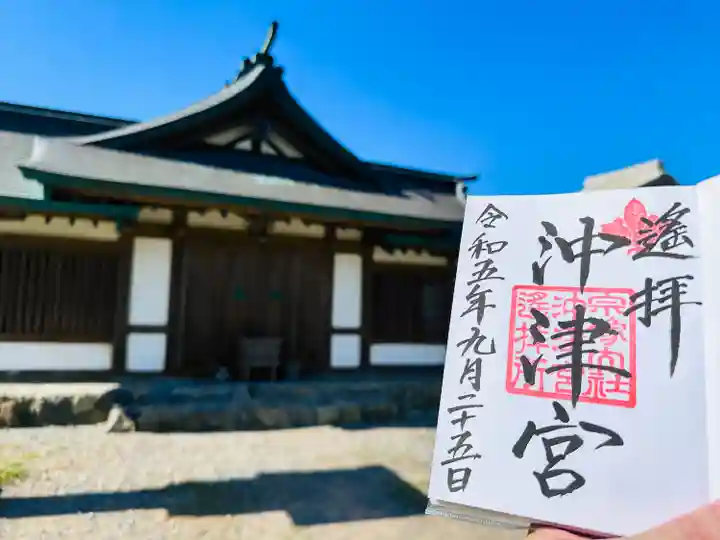 遙拝
沖津宮
宗像大社
沖津宮
遙拝所
令和五年九月二十五日